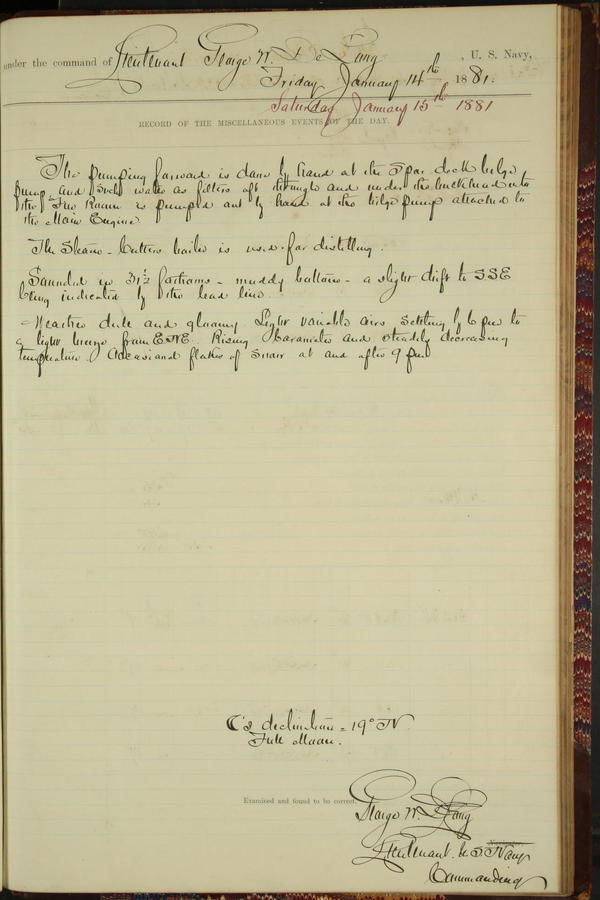 under the command of Lieutenant George W. De Long, U. S. Navy,
Friday January 14th 1881.
Saturday January 15th 1881
RECORD OF THE MISCELLANEOUS EVENTS OF THE DAY.
The pumping forward is done by hand at the spar deck bilge
pump and such water as filters aft through and under the bulkhead into
the Fire Room is pumped out by hand at the bilge pump attached to
the Main Engine.
The Steam-Cutters boiler is used for distilling.
Sounded in 31½ fathoms - muddy bottom - a slight drift to SSE
being indicated by the lead line.
Weather dull and gloomy. Light variable airs settling by 6 pm to
a light breeze from ENE. Rising barometer and steadily decreasing
temperature. Occasional flakes of snow at and after 9 pm
declination = 19° N
Full Moon.
Examined and found to be correct.
George W. De Long
Lieutenant U.S. Navy
Commanding